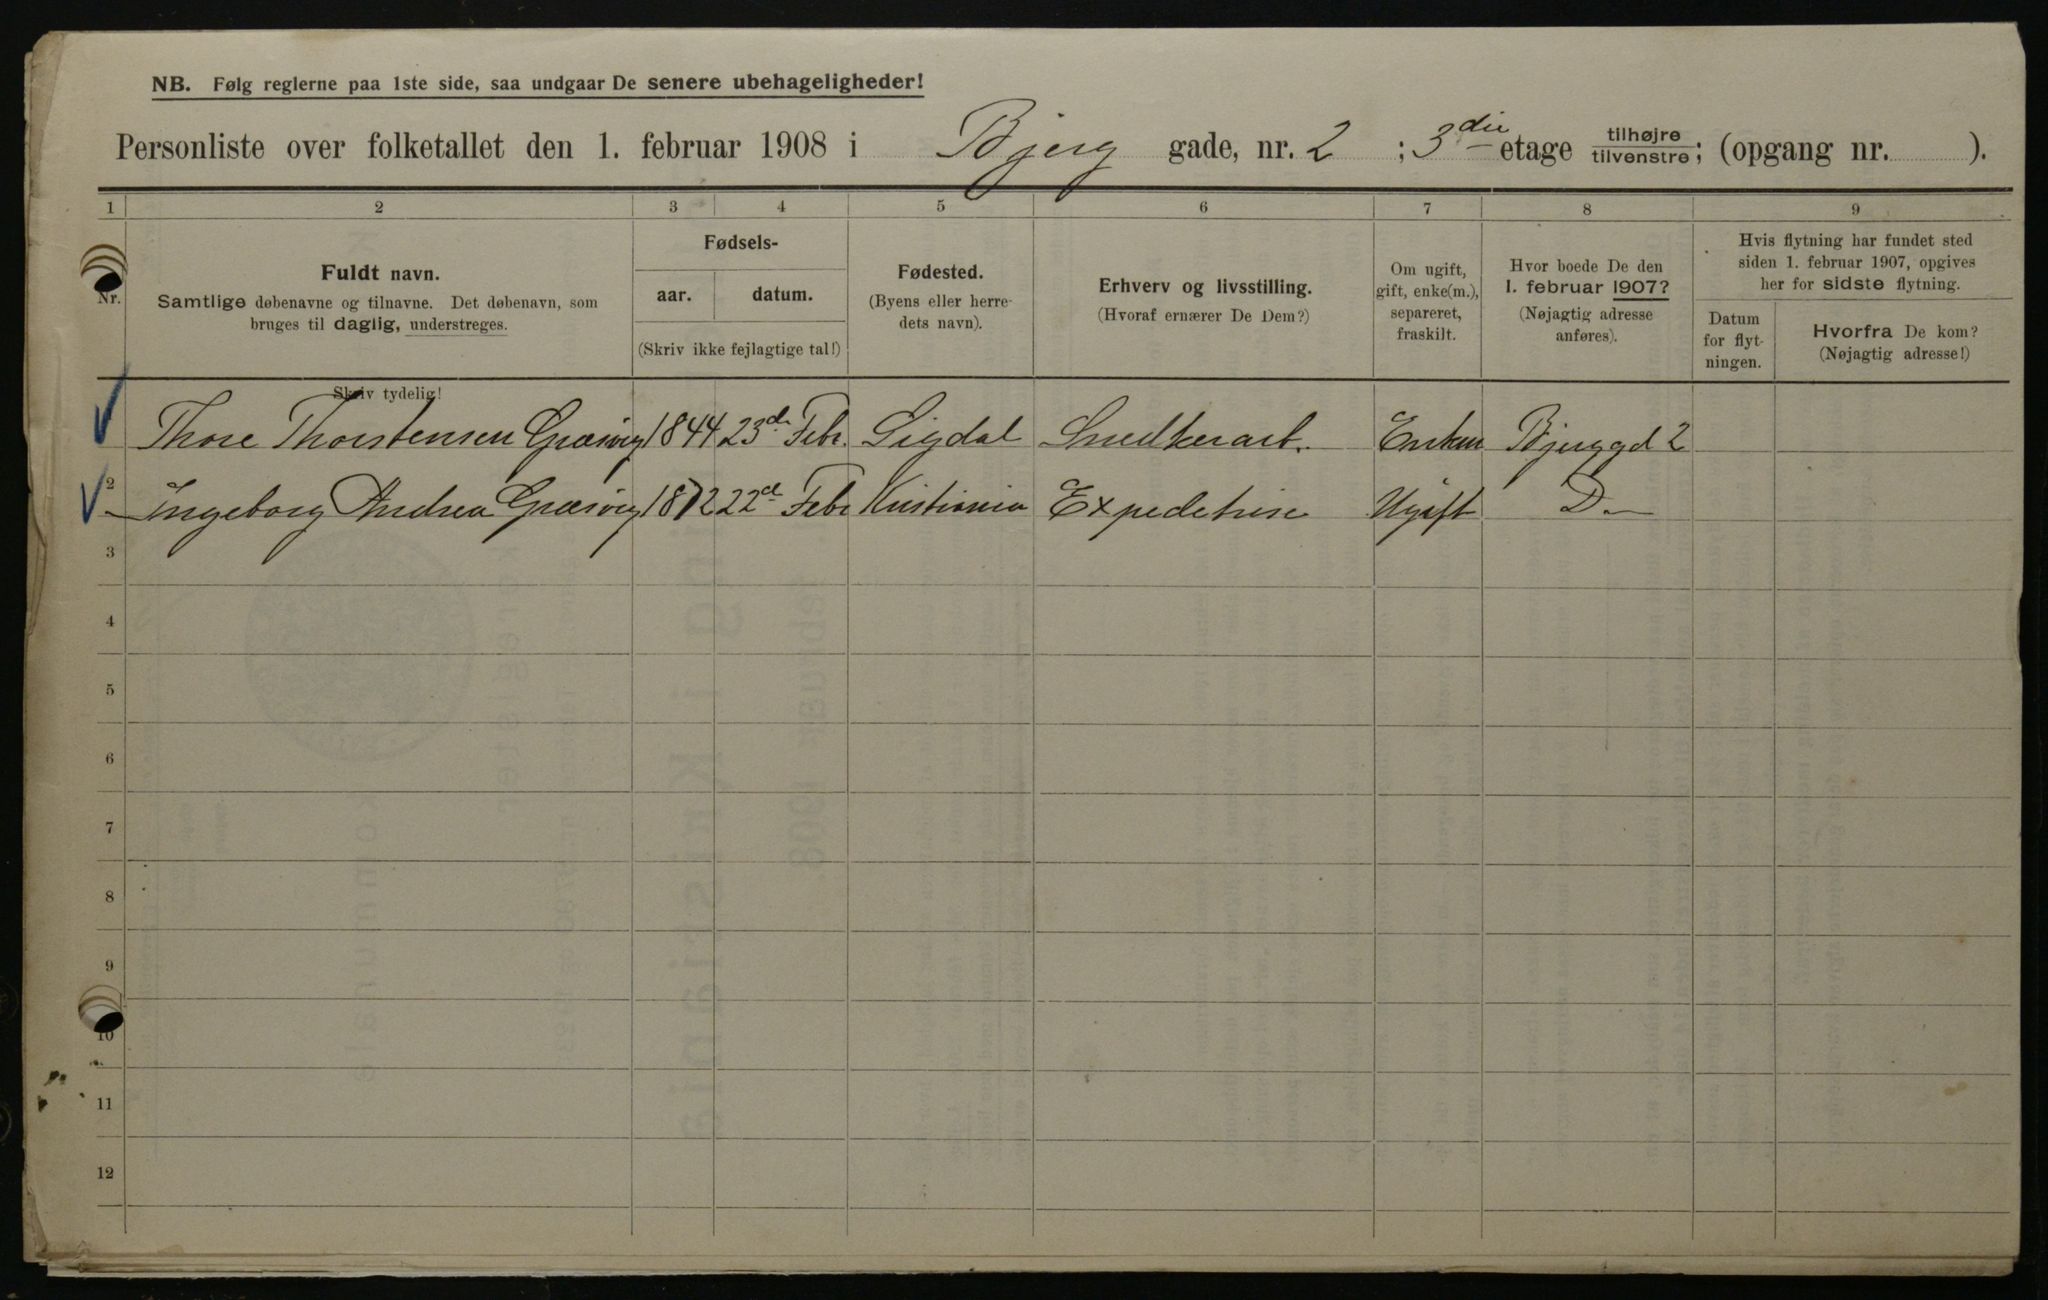 NB. Følg reglerne paa 1ste side, saa undgaar De senere ubehageligheder!
Personliste over folketallet den 1. februar 1908 i Bjerg gade, nr. 2 ; 3die etage tilhøjre/tilvenstre; (opgang nr. ).
1 2 3 4 5 6 7 8 9
Nr.
Fuldt navn.
Samtlige døbenavne og tilnavne. Det døbenavn, som
bruges til daglig, understreges.
Skriv tydelig!
Fødsels-
aar. datum.
(Skriv ikke fejlagtige tal!)
Fødested.
(Byens eller herre-
dets navn).
Erhverv og livsstilling.
(Hvoraf ernærer De Dem?)
Om ugift,
gift, enke(m.),
separeret,
fraskilt.
Hvor boede De den
1. februar 1907?
(Nøjagtig adresse
anføres).
Hvis flytning har fundet sted
siden 1. februar 1907, opgives
her for sidste flytning.
Datum
for flyt-
ningen.
Hvorfra De kom?
(Nøjagtig adresse!)
Thore Thorstensen Græsvig 1844 23de Febr. Sigdal Snedkerarb. Enkem Bjerggd 2
2 Ingeborg Andrea Græsvig 1872 22d Febr Kristiania Expeditrise Ugift D.
3
4
5
6
7
8
9
10
11
12